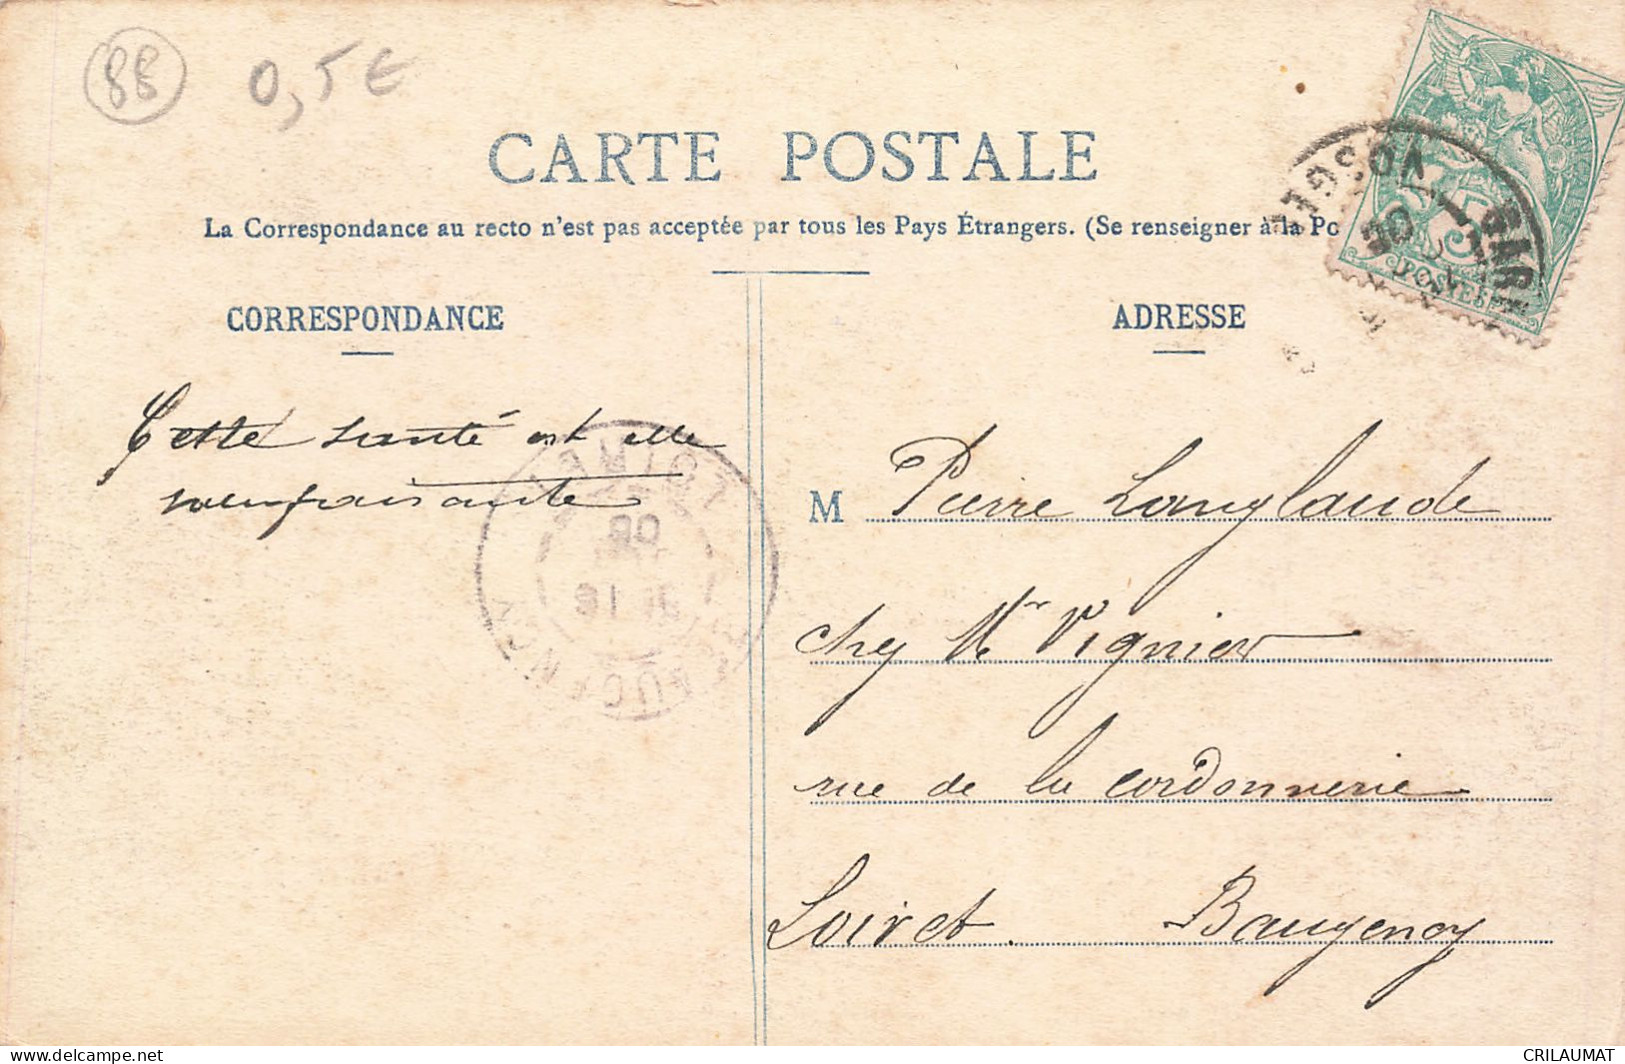 88
0,5€
CARTE POSTALE
La Correspondance au recto n'est pas acceptée par tous les Pays Étrangers. (Se renseigner à la Po
VOSGES
POSTES
5
CORRESPONDANCE
ADRESSE
Cette santé est elle
M Pierre Langlaude
chez Mr Vignier
rue de la cordonnerie
Loiret. Baugency
CRILAUMAT